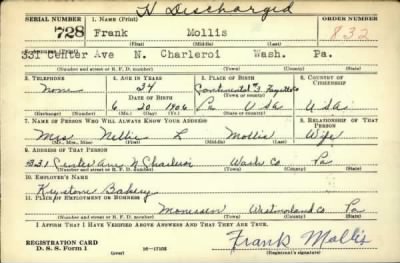 H Discharged
SERIAL NUMBER 1. NAME (Print) ORDER NUMBER
728 Frank Mollis 832
(First) (Middle) (Last)
2. ADDRESS (Print)
331 Center Ave N. Charleroi Wash. Pa.
(Number and street or R. F. D. number) (Town) (County) (State)
3. TELEPHONE 4. AGE IN YEARS 5. PLACE OF BIRTH 6. COUNTRY OF CITIZENSHIP
None 34 Continental 3, Fayette Co
DATE OF BIRTH (Town) (County)
6 20 1906 Pa USA USA
(Exchange) (Number) (Mo.) (Day) (Yr.) (State) (Country)
7. NAME OF PERSON WHO WILL ALWAYS KNOW YOUR ADDRESS 8. RELATIONSHIP OF THAT PERSON
Mrs Nellie L Mollis Wife
(Mr., Mrs., Miss) (First) (Middle) (Last)
9. ADDRESS OF THAT PERSON
331 Center Ave N Charleroi Wash Co Pa
(Number and street or R. F. D. number) (Town) (County) (State)
10. EMPLOYER'S NAME
Keystone Bakery
11. PLACE OF EMPLOYMENT OR BUSINESS
Monessen Westmoreland Co Pa
(Number and street or R. F. D. number) (Town) (County) (State)
I AFFIRM THAT I HAVE VERIFIED ABOVE ANSWERS AND THAT THEY ARE TRUE.
REGISTRATION CARD
D. S. S. Form 1 (over) 16-17105 Frank Mollis
(Registrant's signature)